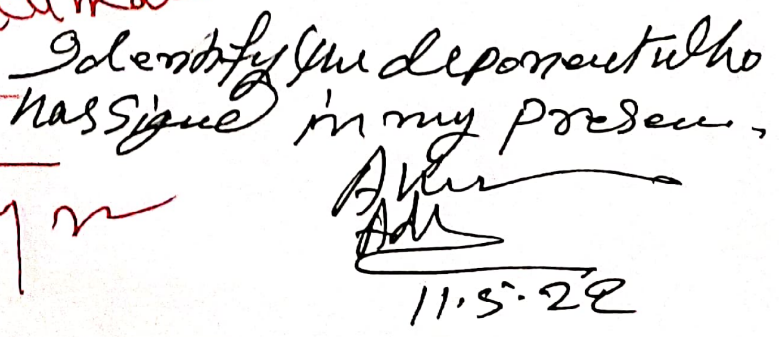 Identify the deponent who
has signed in my presence.
Adv
11.5.22